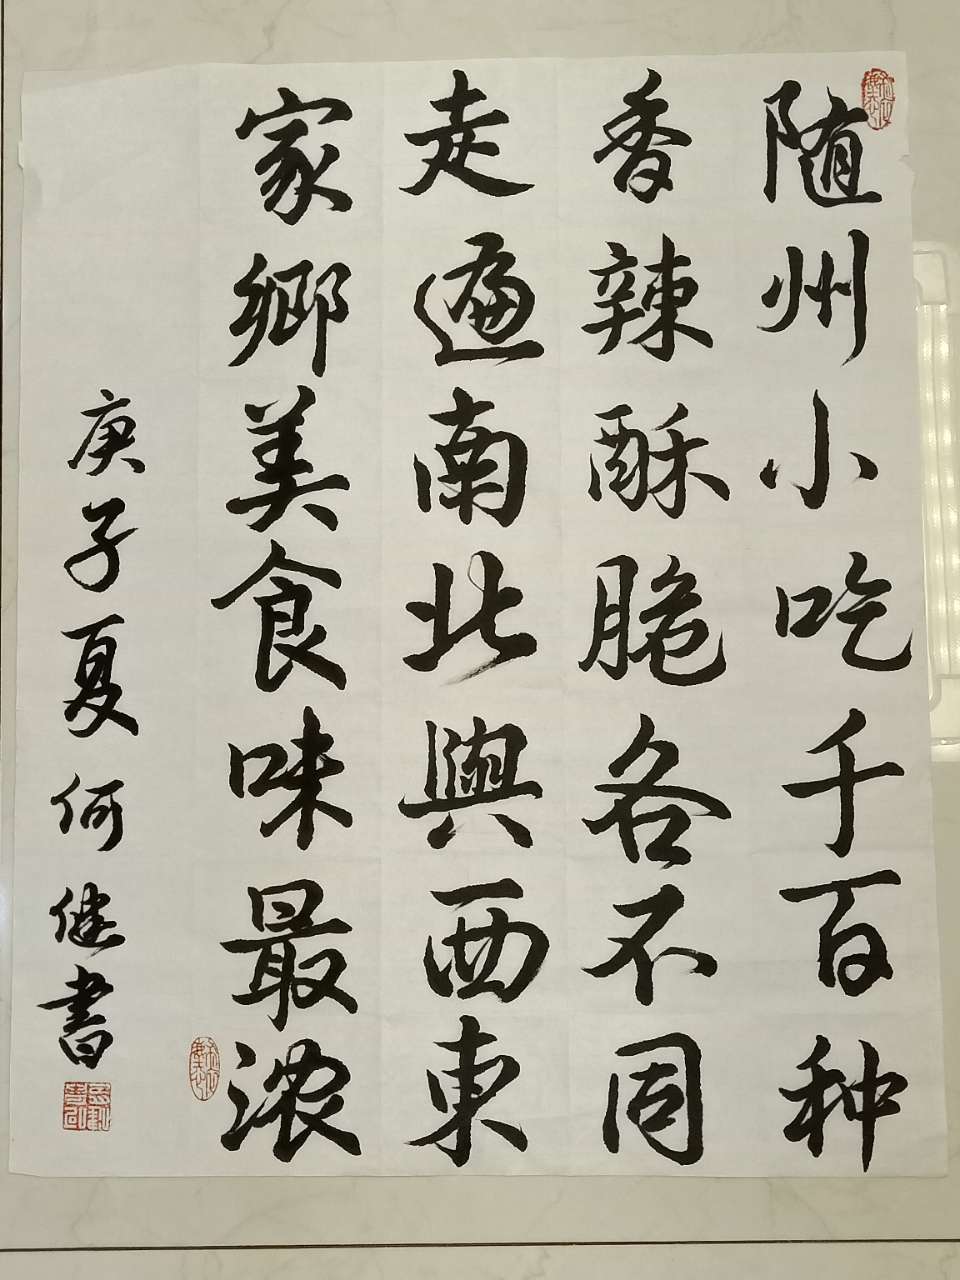 随州小吃千百种
香辣酥脆各不同
走遍南北與西東
家鄉美食味最浓
庚子夏何健書